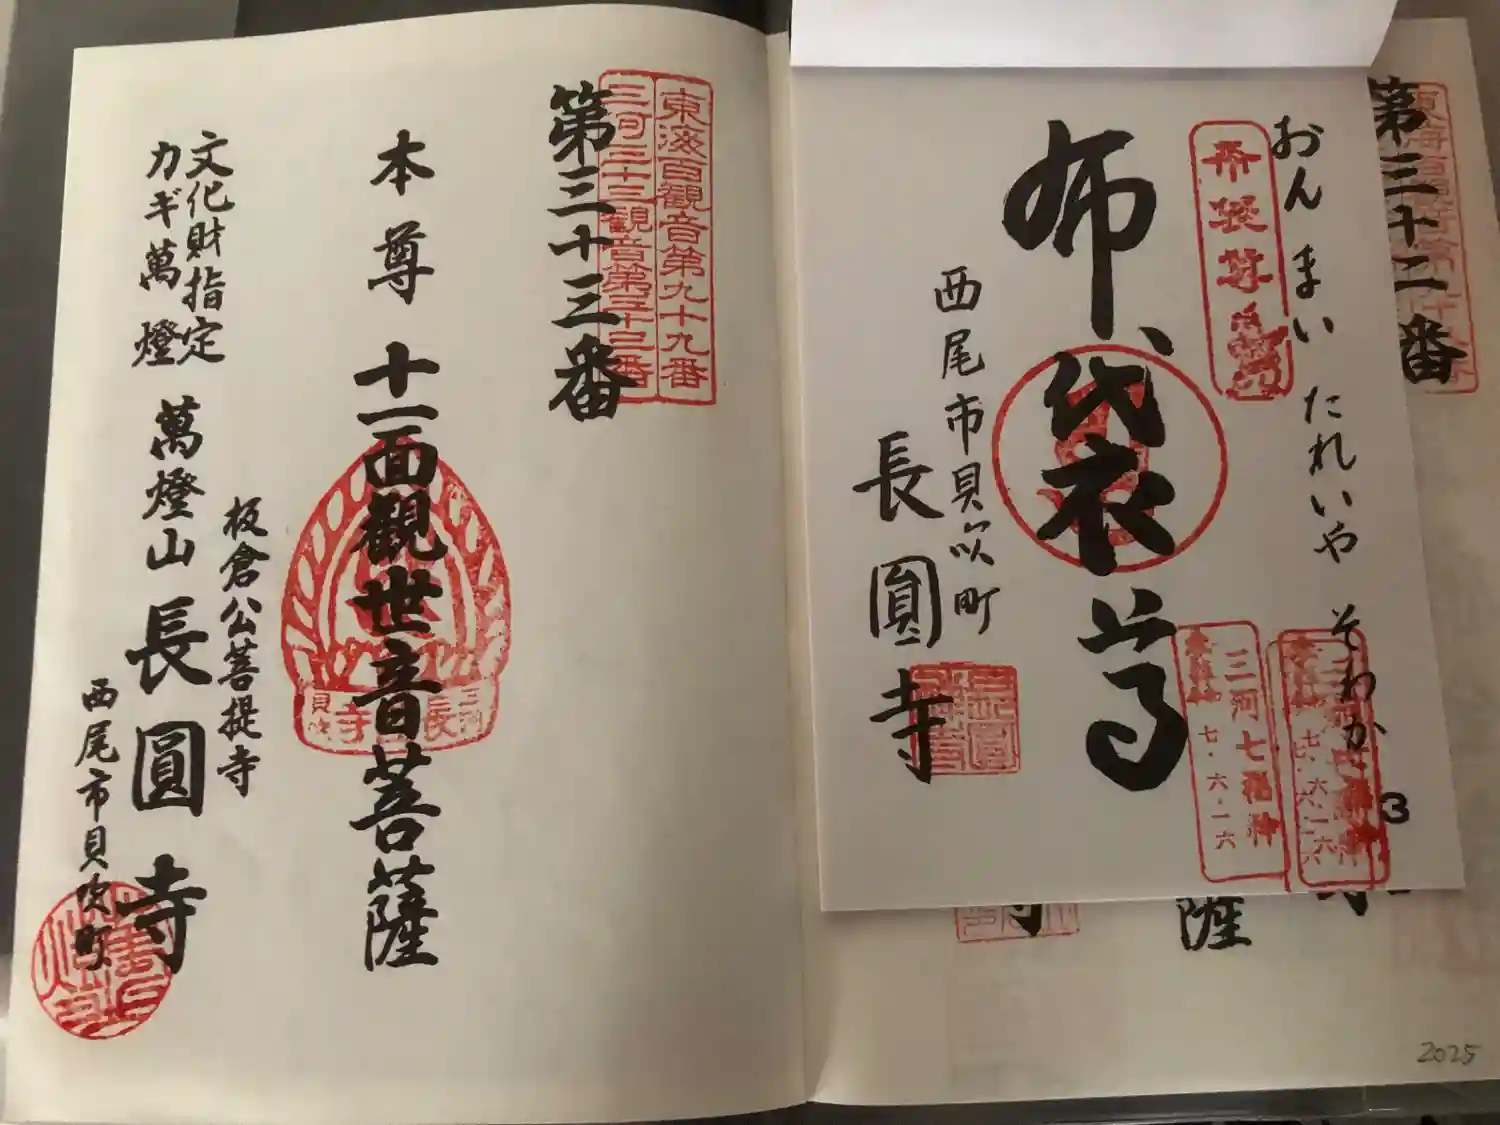 東海百觀音第九十九番
三河三十三觀音第三十三番
第三十三番
本尊 十一面觀世音菩薩
三河
長
寺
貝吹
板倉公菩提寺
文化財指定
カギ萬燈 萬燈山 長圓寺
西尾市貝吹町
第三十二番
薩
おん まい たれいや そわか
布袋尊
布袋衣尊
三河七福神
七.六.一六
七.六.一六
西尾市貝吹町
長圓寺
3
2025